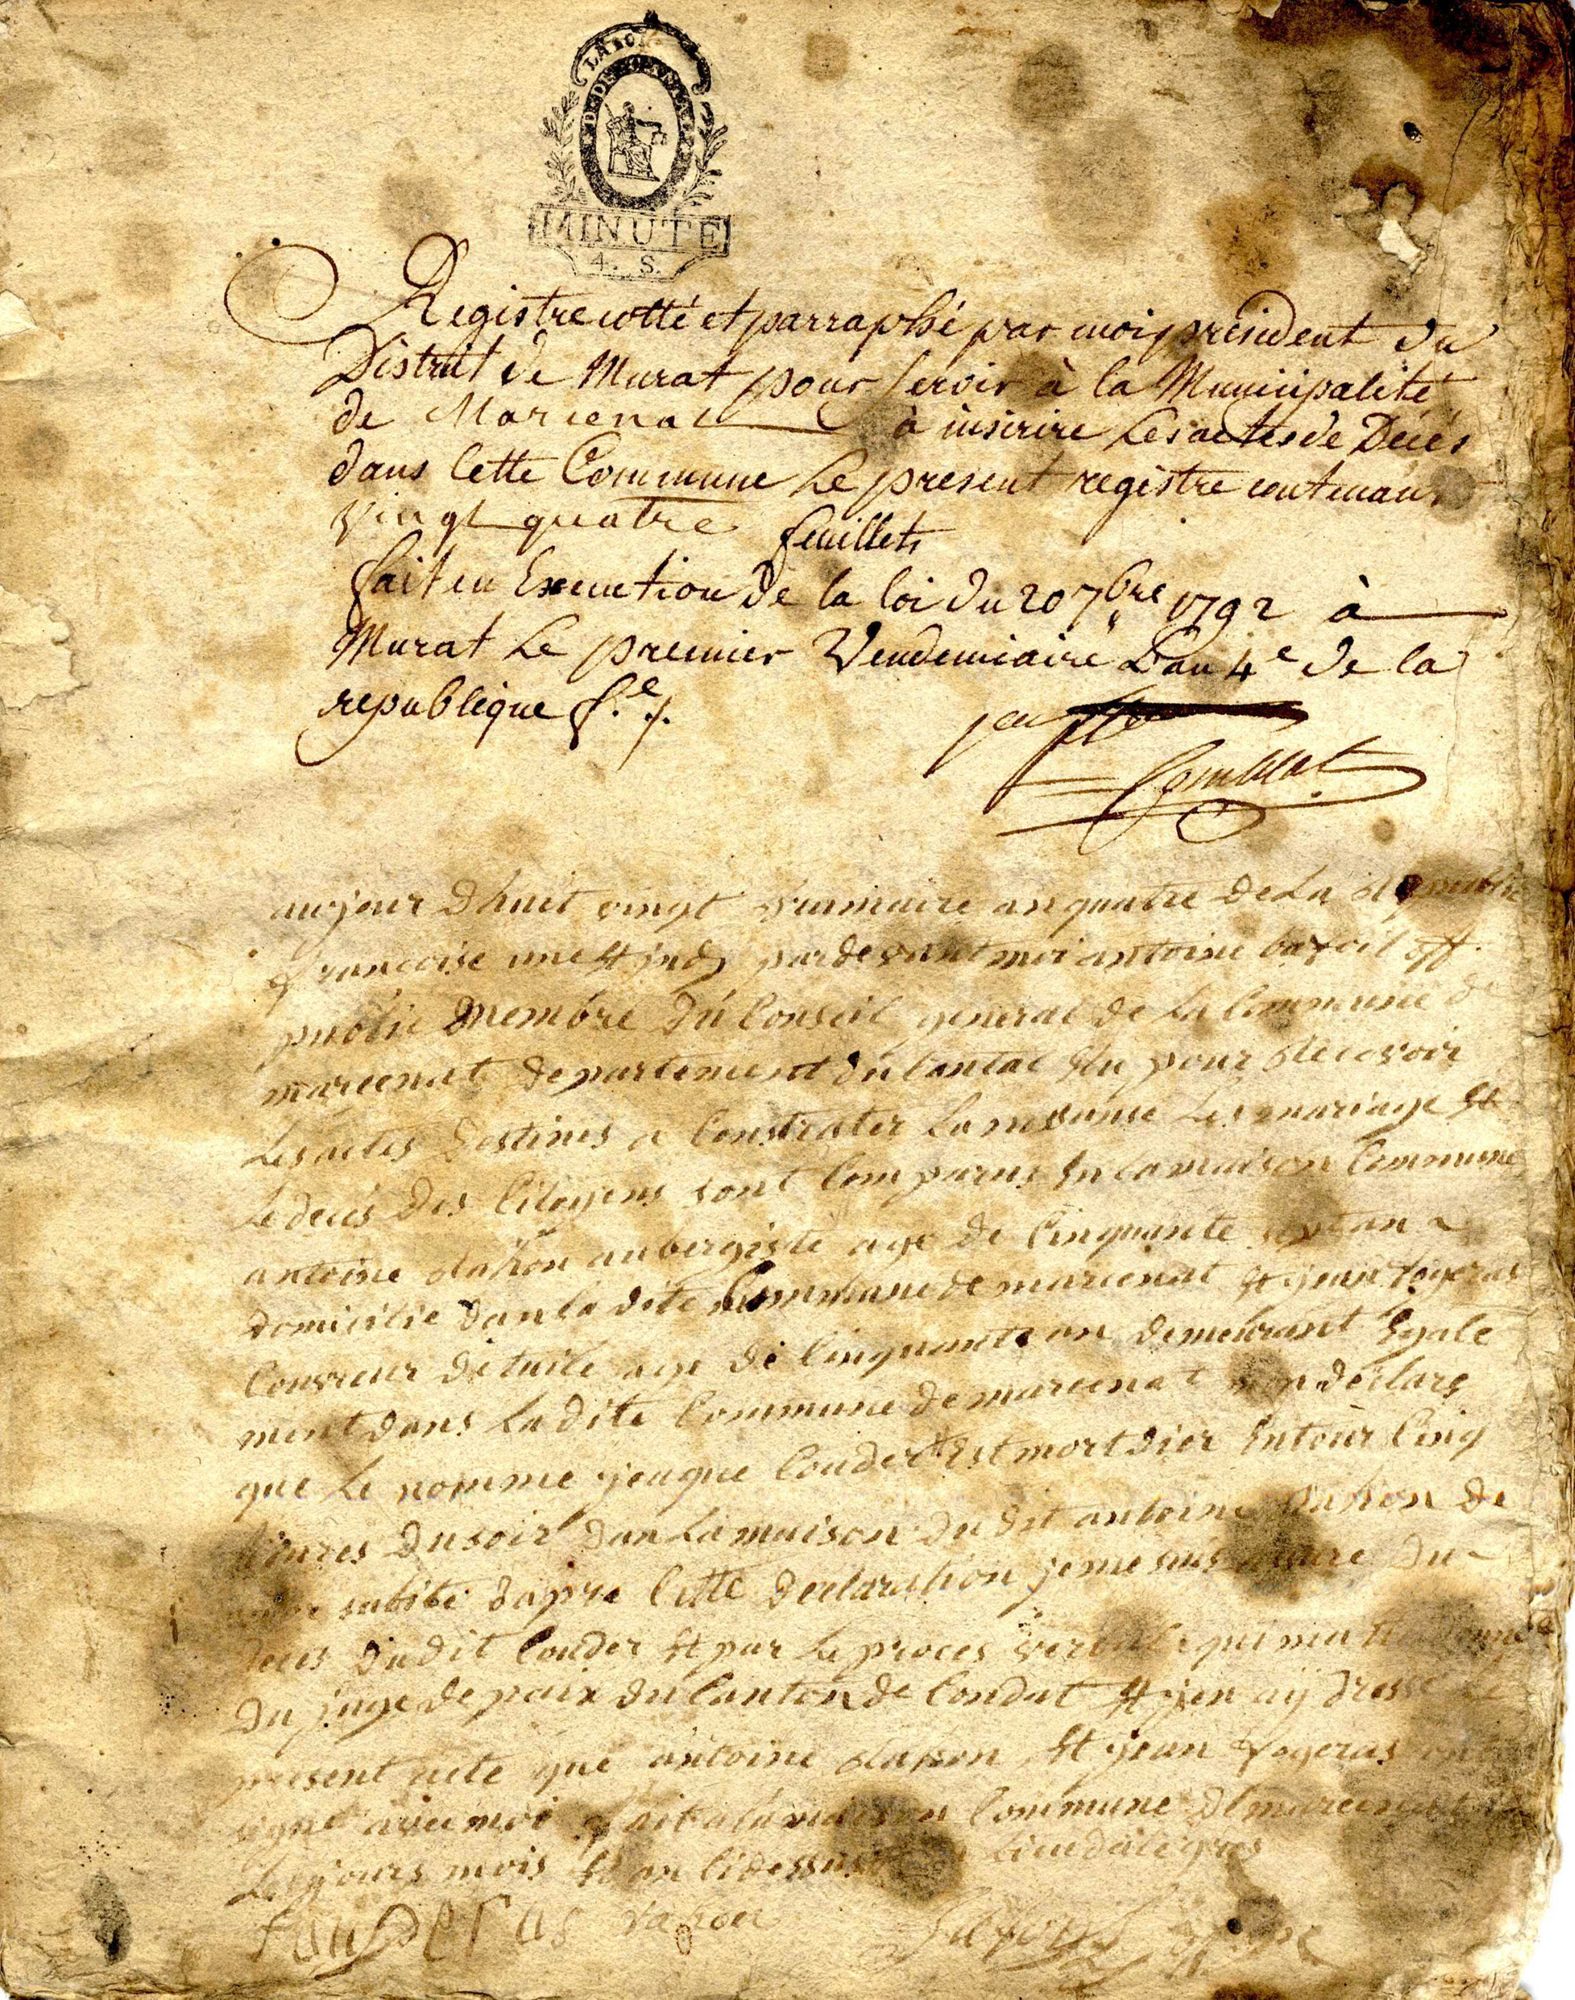 LA LOI
D. DU CANTAL
MINUTE
4. S.
Registre cotté et parraphé par moi president du
District de Murat pour servir à la Municipalité
de Marcenat à inscrire Les actes de Décés
dans Cette Commune Le present registre contenant
vingt quatre feuillets
fait en Execution de la loi du 20 7bre 1792 à
Murat Le premier Vendemiaire L'an 4e de la
republique f.e /.
aujour dhuit vingt an quatre de La republi
francoise une et ind pardevant moi antoine off.
public Membre du Conseil general de La Commune de
marcenat departement du Cantal elu pour recevoir
Les actes destinés a Constrater La Les mariage et
Le decés des Citoyens sont Comparus en La maison Commune
antoine aubergiste age de Cinquante sept an
domicilie dan La dite Commune de marcenat et jean
Couvreur de tuile age de Cinquante an demeurant Egale
ment dans La dite Commune de marcenat declare
que Le nomme jeaque Couderc Est mort dier Entour Cinq
heures du soir dan La maison du dit antoine de
subite dapre Cette declaration je me suis assure du
deces du dit Couder et par Le proces verbal qui ma
du juge de paix du Canton de Condat et jen aij dresse
present acte que antoine et jean ont
signé avec moi fait a la maison Commune de marcenat
Les jours mois et an Cidessus